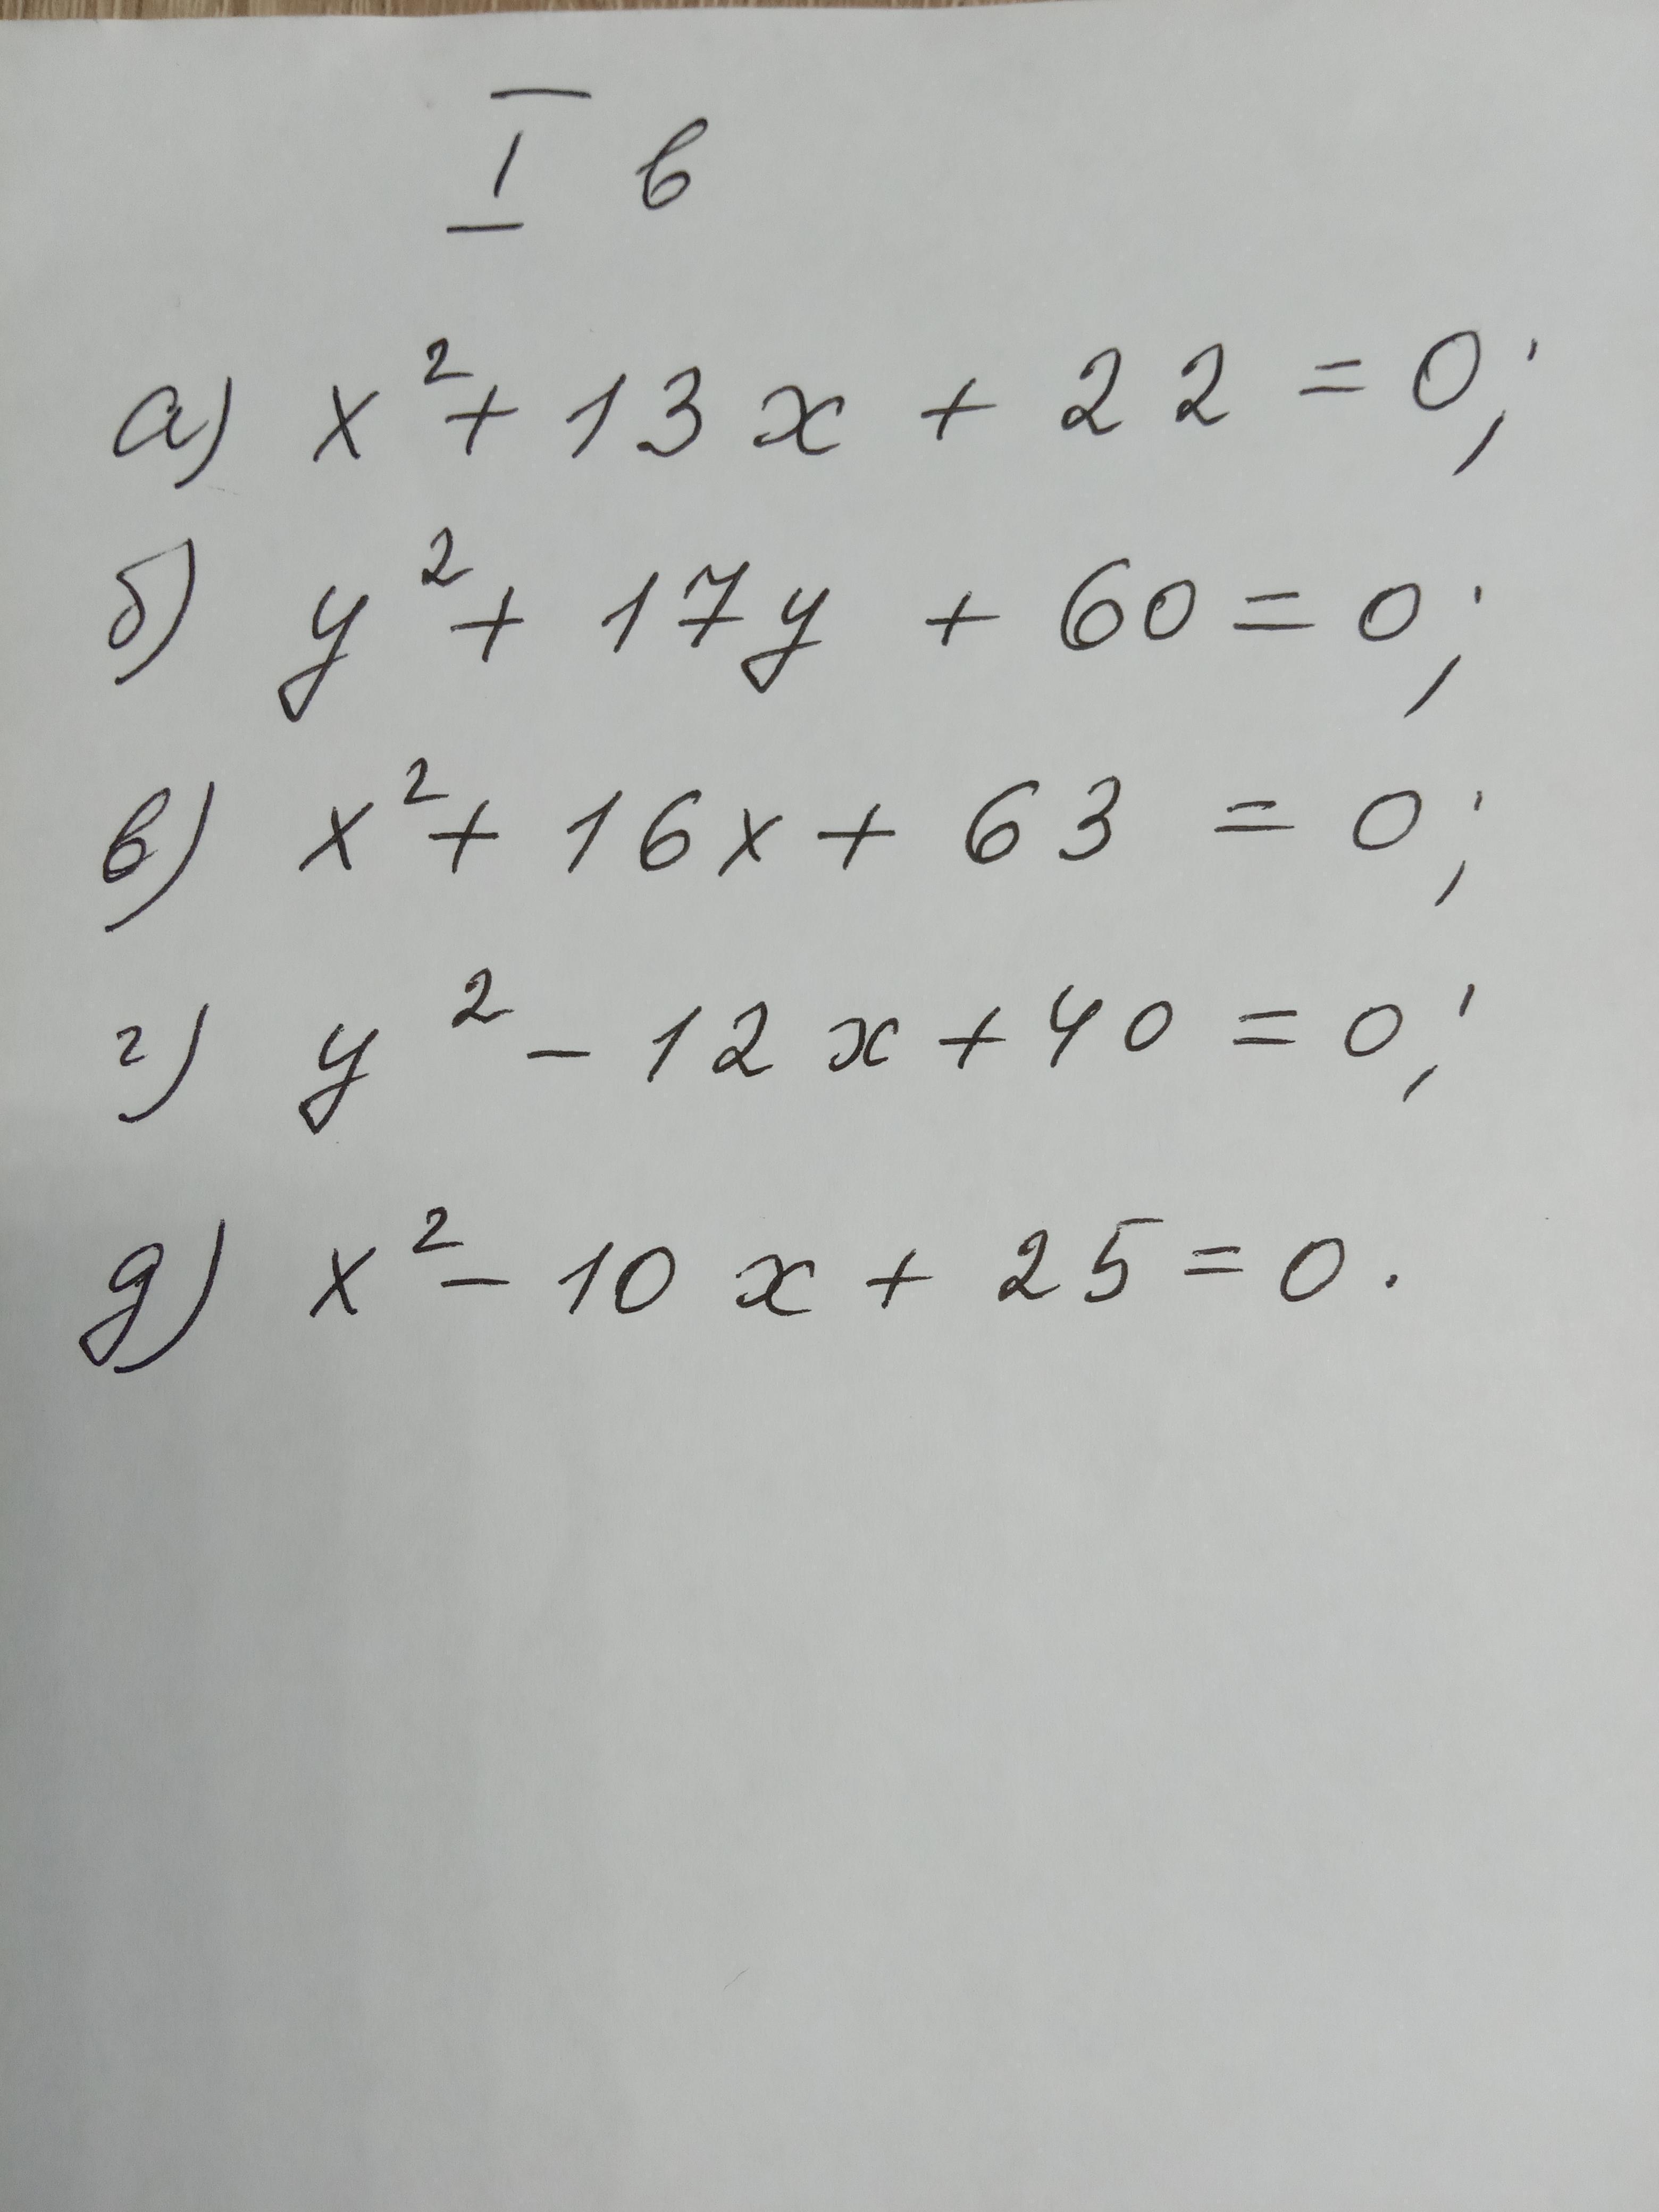 I в
а) x² + 13x + 22 = 0;
б) y² + 17y + 60 = 0;
в) x² + 16x + 63 = 0;
г) y² - 12x + 40 = 0;
д) x² - 10x + 25 = 0.